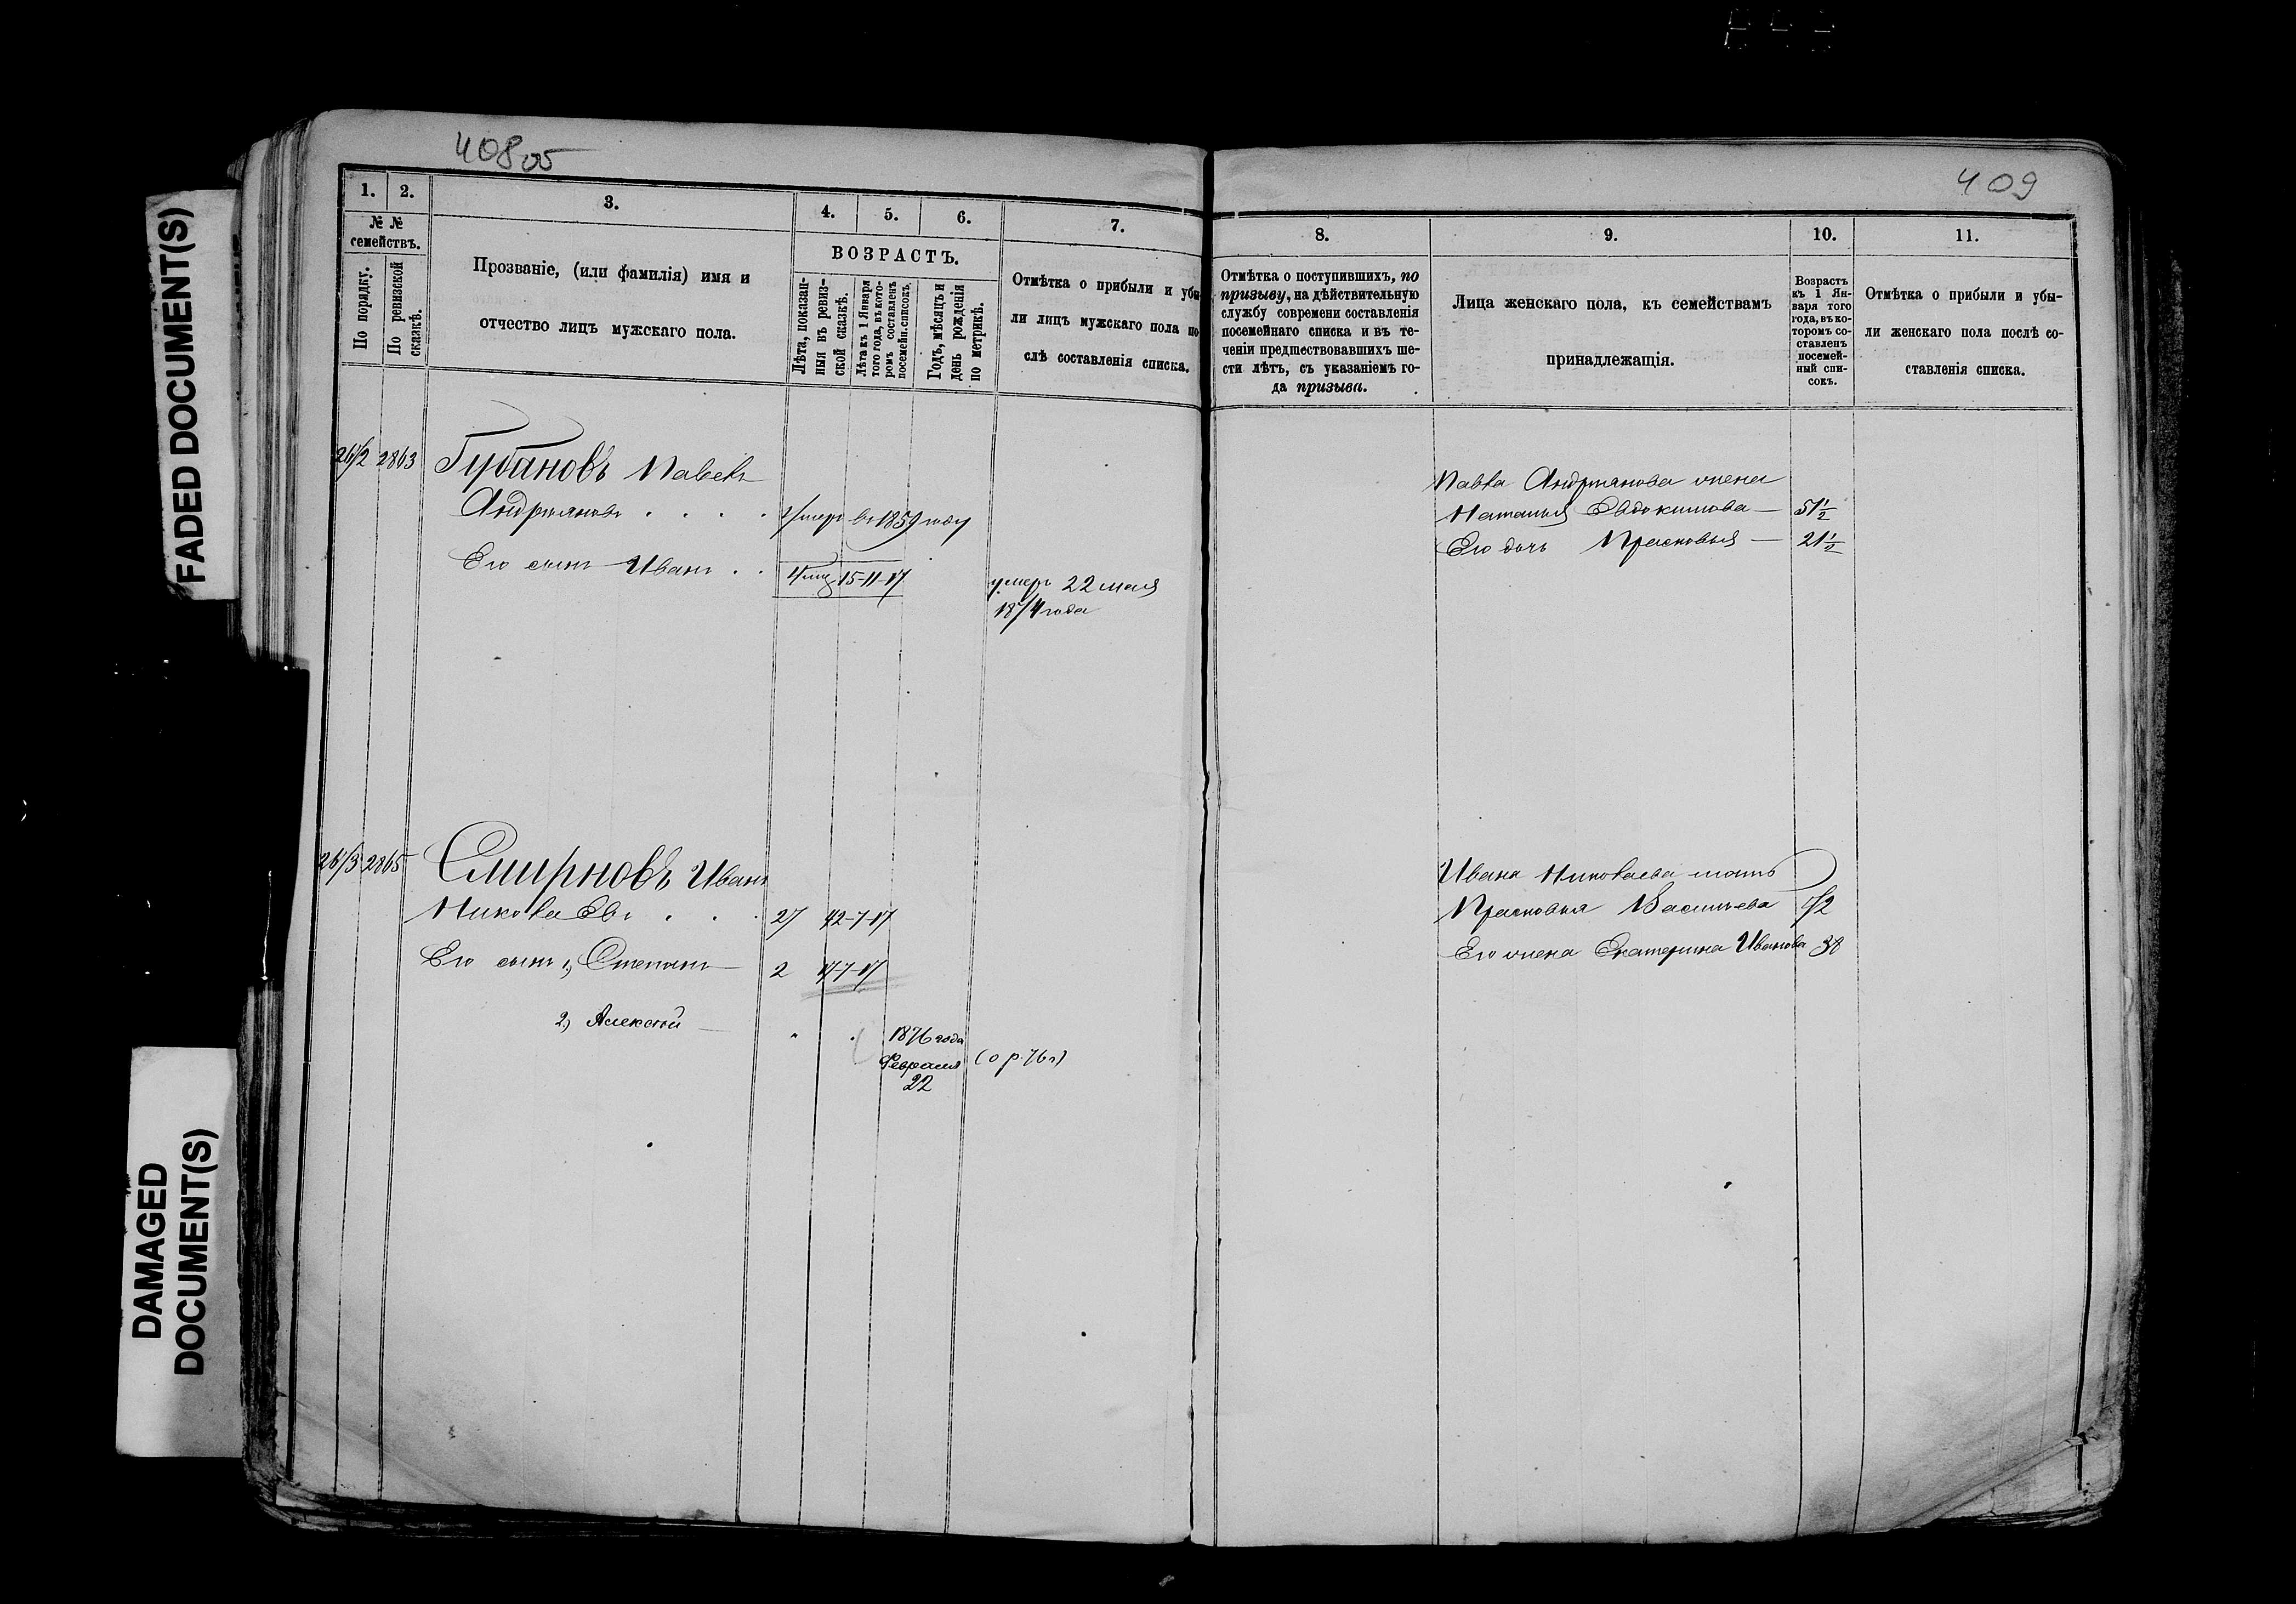 FADED DOCUMENT(S)
DAMAGED
DOCUMENT(S)
408об
1. 2. 3. 4. 5. 6. 7.
№ №
семействъ.
По порядку.
По ревизской
сказкѣ.
Прозваніе, (или фамилія) имя и
отчество лицъ мужскаго пола.
ВОЗРАСТЪ.
Лѣта, показан-
ныя въ ревиз-
ской сказкѣ.
Лѣта къ 1 Января
того года, въ кото-
ромъ составленъ
посемейн. списокъ.
Годъ, мѣсяцъ и
день рожденія
по метрикѣ.
Отмѣтка о прибыли и убы-
ли лицъ мужскаго пола по-
слѣ составленія списка.
2863
Губановъ Павелъ
Андріяновъ . . . . умеръ въ 1859 году
Его сынъ Иванъ . . 15-11-17
умеръ 22 мая
1874 года
2865
Смирновъ Иванъ
Николаевъ . . . 27 42-7-17
Его сынъ 1) Степанъ 2 17-7-17
2) Алексѣй 1876 года
Февраля (о р. 76 г)
22
409
8. 9. 10. 11.
Отмѣтка о поступившихъ, по
призыву, на дѣйствительную
службу современи составленія
посемейнаго списка и въ те-
ченіи предшествовавшихъ ше-
сти лѣтъ, съ указаніемъ го-
да призыва.
Лица женскаго пола, къ семействамъ
принадлежащія.
Возрастъ
къ 1 Ян-
варя того
года, въ ко-
торомъ со-
ставленъ
посемей-
ный спи-
сокъ.
Отмѣтка о прибыли и убы-
ли женскаго пола послѣ со-
ставленія списка.
Павла Андріянова жена
Наталья Евдокимова — 51½
Его дочь Прасковья — 21½
Ивана Николаева мать
Прасковья Васильева
Его жена Екатерина Иванова 38